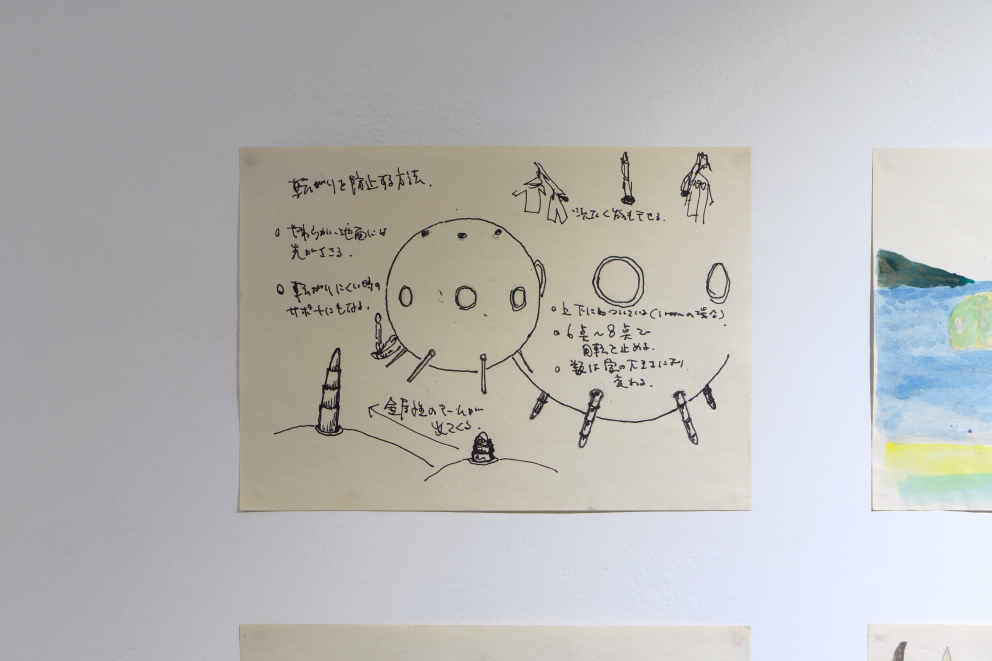 転がりを防止する方法.
o やわらかい地面には
先がささる.
o 転がりにくい時の
サポートにもなる.
できる.
o 上下についている(1roomの場合)
o 6点〜8点で
回転を止める.
o 数は家の大きさにより
変わる.
金属性のアームが
出てくる.